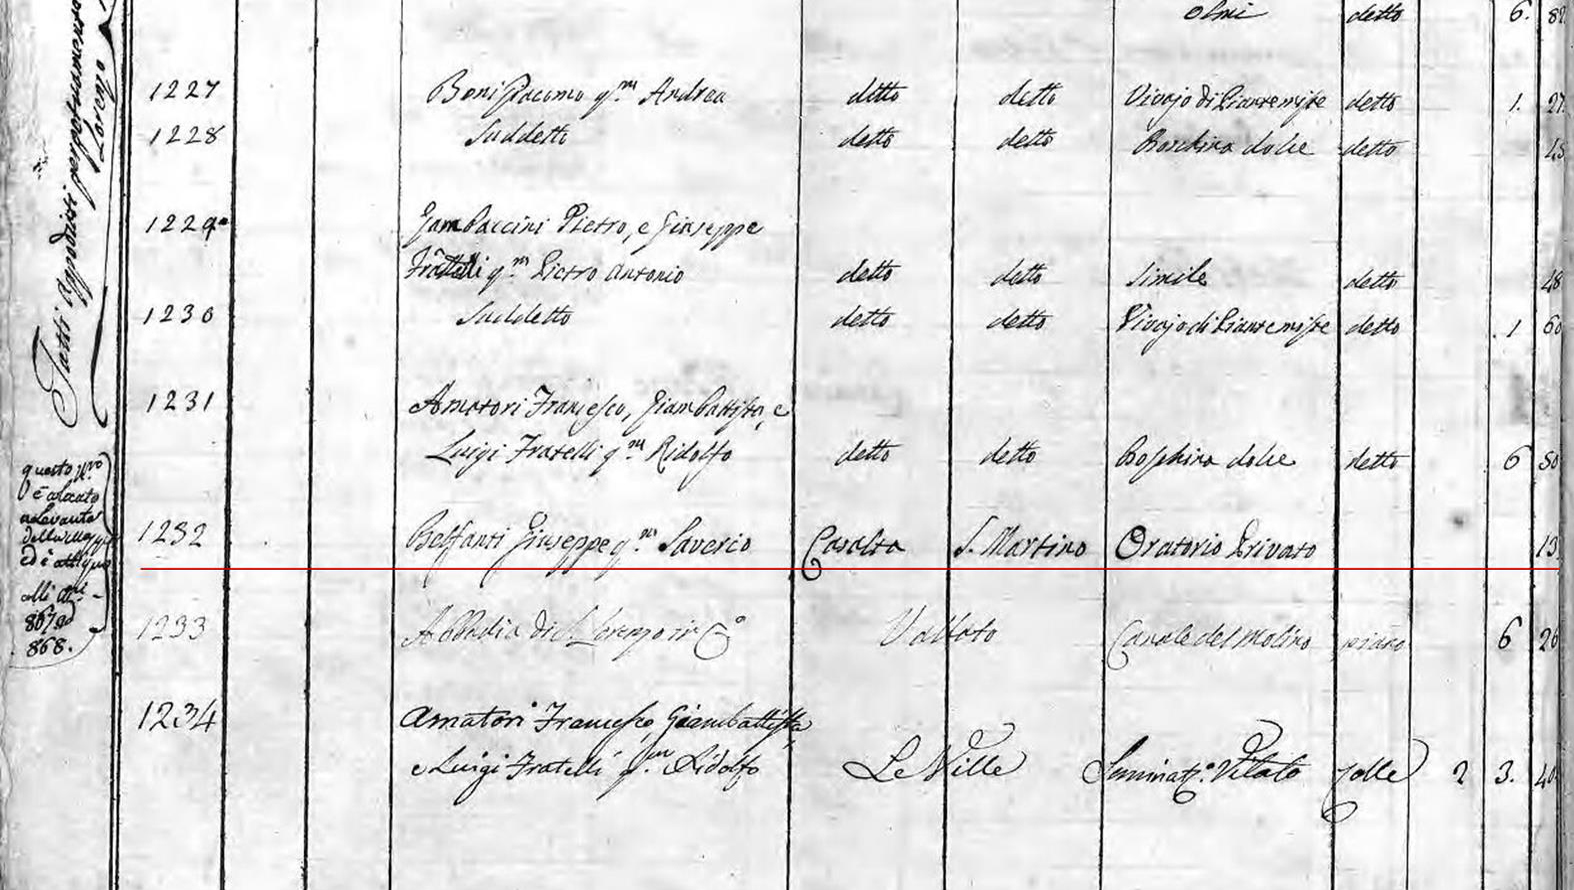 olmi detto 6. 82
1227 Boni Giacomo q.m Andrea ditto detto Vivajo di Piante miste detto 1. 27
1228 Suddetti detto detto Boschiva dolce detto 45
1229 Giambaccini Pietro, e Giuseppe
Fratelli q.m Pietro Antonio detto detto Simile detto 48
1230 Suddetto detto detto Vivajo di Piante miste detto . 1 60
1231 Amatori Francesco, Giambattista, e
Luigi Fratelli q.m Ridolfo detto detto Boschiva dolce detto 6 50
1232 Belfanti Giuseppe q.m Saverio Casalta S. Martino Oratorio Privato 13
1233 Abbadia di S. Lorenzo in C.o Vallato Canale del Molino piano 6 26
1234 Amatori Francesco, Giambattista,
e Luigi Fratelli q.m Ridolfo Le Ville Seminat.o Vitato Colle 2 3. 40
Tutti
questo N.ro
è alocato
a levante
della Mappa
ed è
alli
867 e
868.